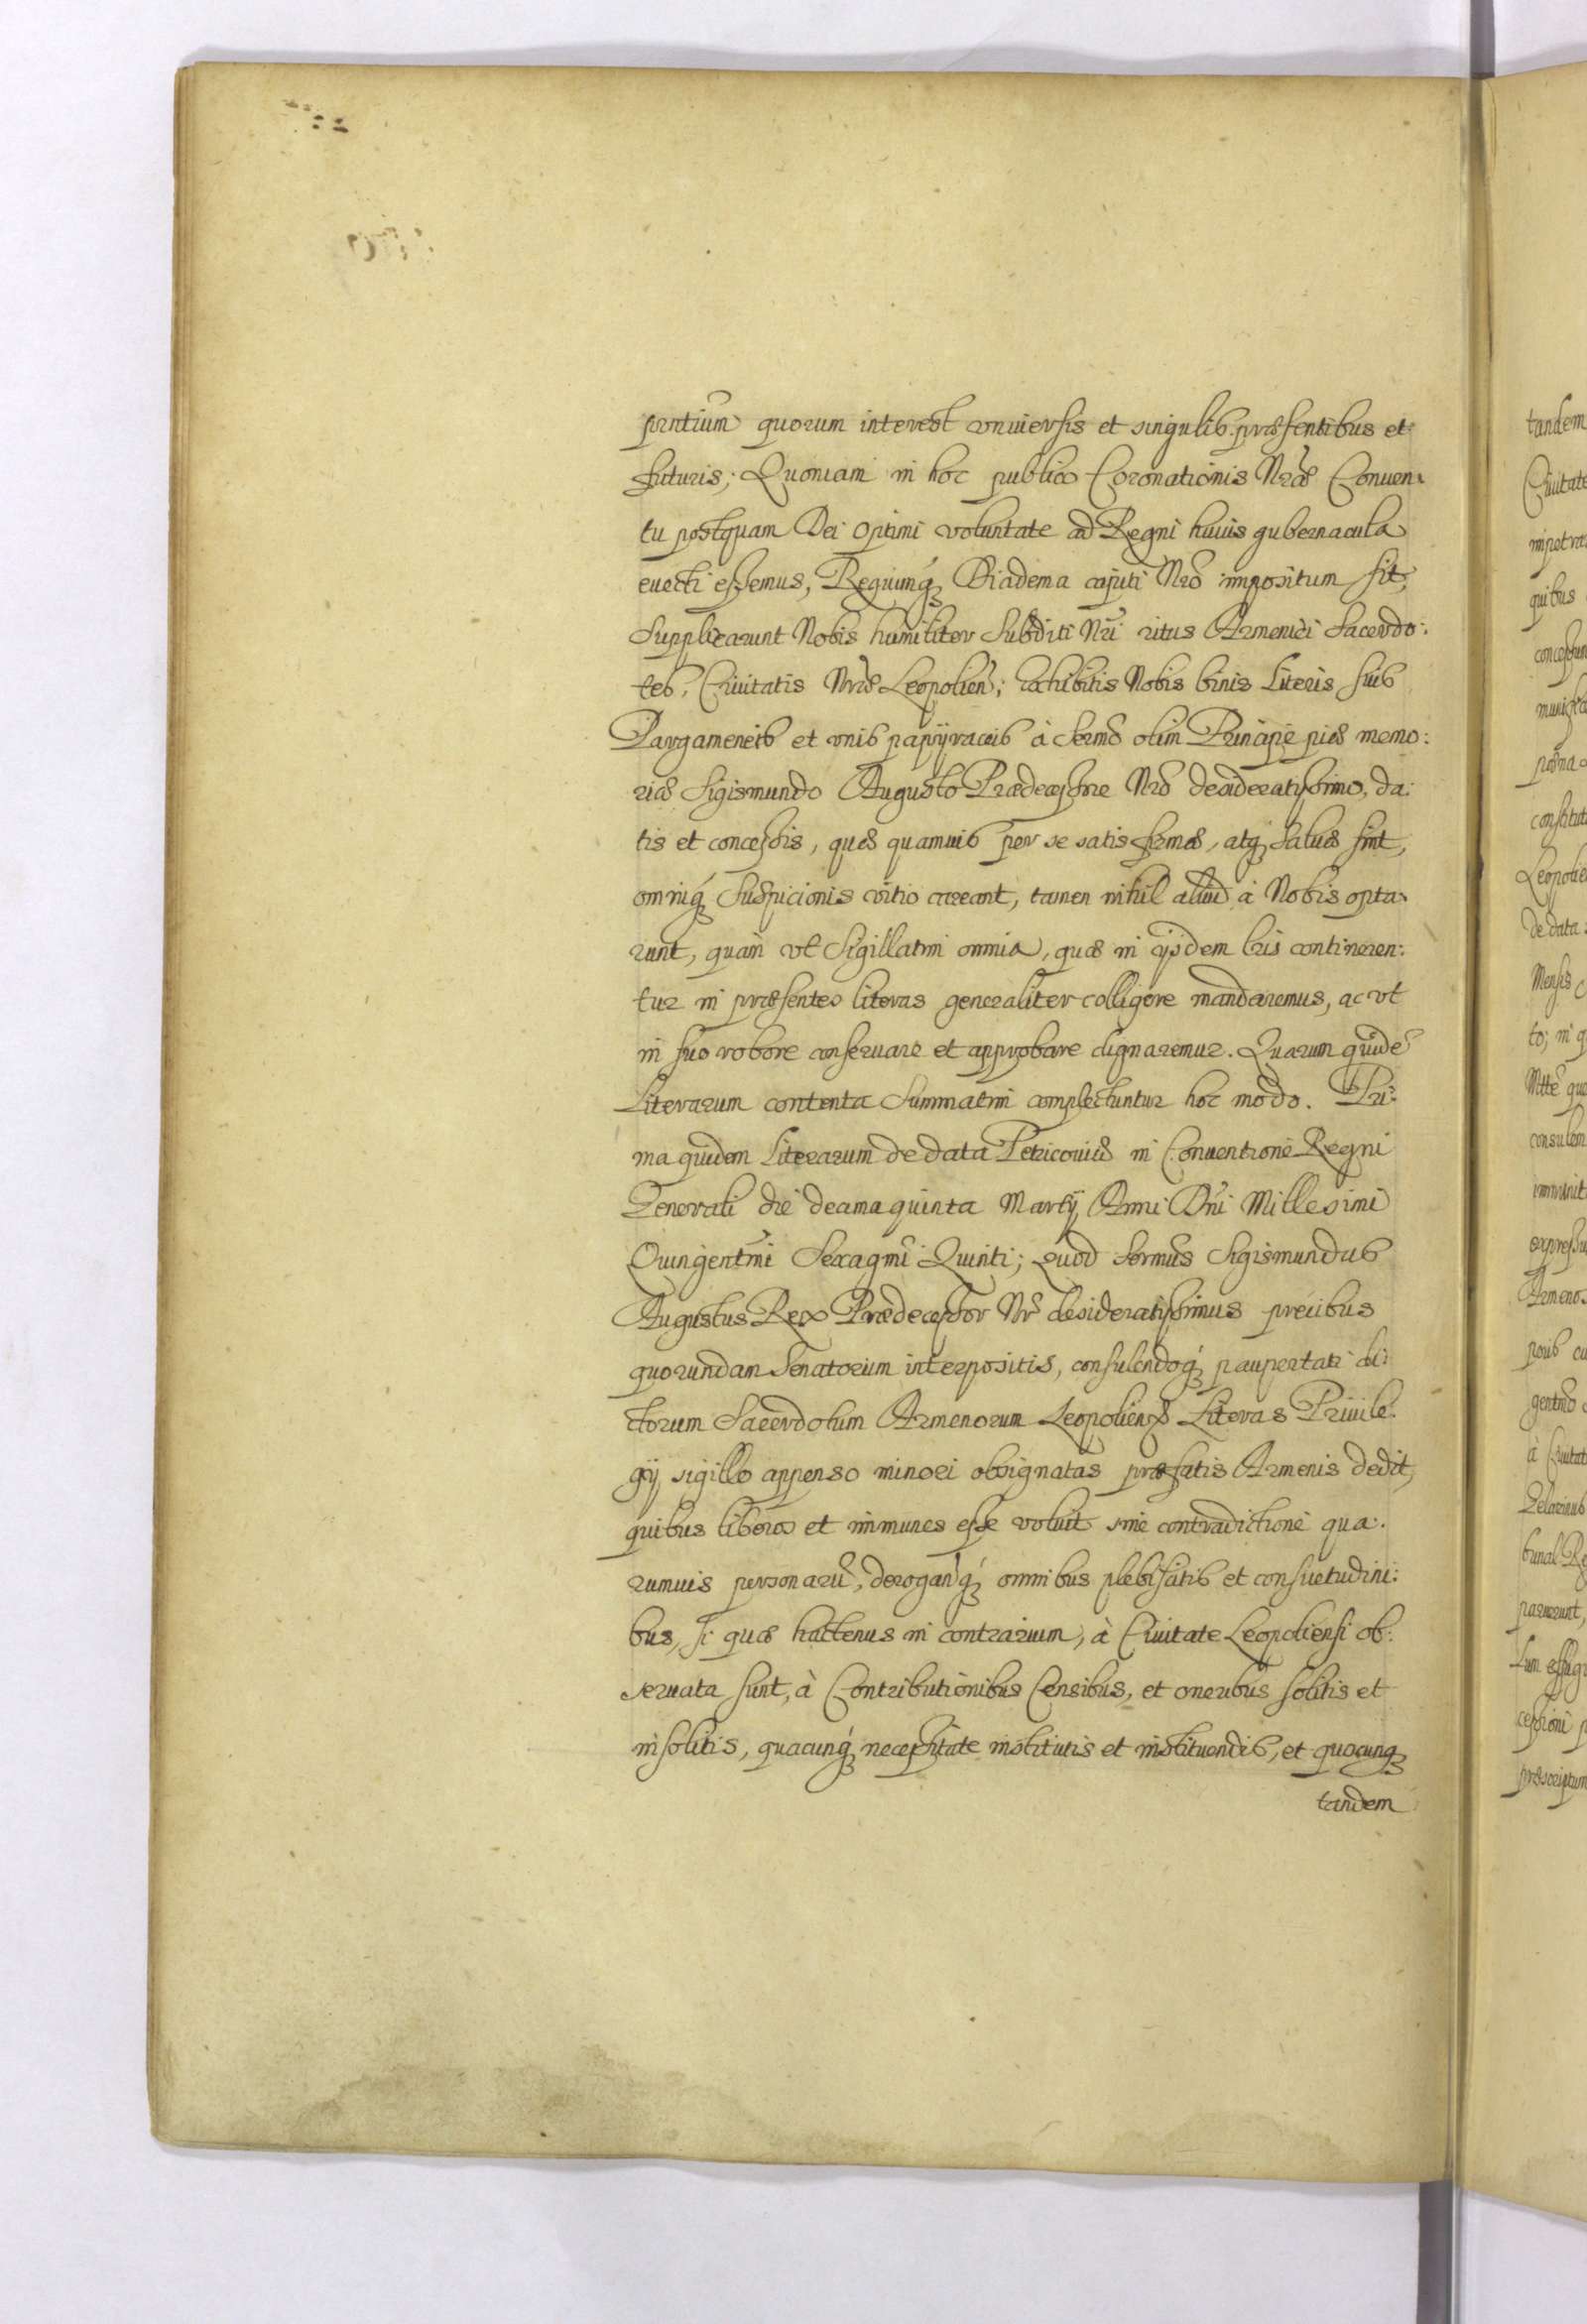 prntium quorum interest vniuersis et singulis præsentibus et
futuris; Quoniam in hoc publico Coronationis Nræ Conuen:
tu postquam Dei Optimi voluntate ad Regni huius gubernacula
euecti essemus, Regiumq́ Diadema capiti Nro impositum sit,
Supplicarunt Nobis humiliter Subditi Nri ritus Armenici Sacerdo:
tes, Ciuitatis Nræ Leopolien; exhibitis Nobis binis Literis suis
Pargameneis et vnis papyraceis à Sermo olim Principe piæ memo:
riæ Sigismundo Augusto Prædecessore Nro desideratissimo, da:
tis et concessis, quæ quamuis per se satis firmæ, atq saluæ sint,
omniq́ suspicionis vitio careant, tamen nihil aliud à Nobis opta:
runt, quàm vt Sigillatim omnia, quæ in ijsdem lris continèren:
tur in præsentes literas generaliter colligere mandaremus, ac vt
in suo robore conseruare et approbare dignaremur. Quarum quidẽ
Literarum contenta summatim complectuntur hoc modo. Pri:
ma quidem Literarum de data Petricouiæ in Conuentione Regni
Generali die decima quinta Martij Anni Dni Millesimi
Quingentmi Sexagmi Quinti; Quod Sermus Sigismundus
Augustus Rex Prædecessor Nr desideratissimus precibus
quorundam Senatorum interpositis, consulendoq́ paupertati di:
ctorum Sacerdotum Armenorum Leopolien Literas Priuile:
gij sigillo appenso minori obsignatas præfatis Armenis dedit,
quibus liberos et immunes esse voluit sine contradictione qua:
rumuis personarũ, deroganq́ omnibus plebiscitis et consuetudini:
bus, si quæ hactenus in contrarium, à Ciuitate Leopoliensi ob:
seruata sunt, à Contributionibus Censibus, et oneribus solitis et
insolitis, quacunq́ necessitate institutis et instituendis, et quocunq
tandem
tandem
Ciuitate
impetra
quibus
constituti
Leopolie
de data
Mensis
to; in q
consulem
immunit
Armenos
gentmo
à Ciuitat
bunal Re
paruerunt,
præscriptum